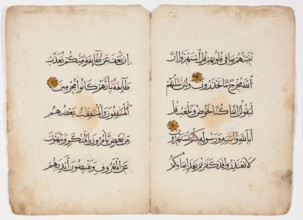 تنبئهم بما في قلوبهم قل استهزؤا إن
الله مخرج ما تحذرون ولئن سألتهم
ليقولن إنما كنا نخوض ونلعب قل
أبالله وآياته ورسوله كنتم تستهزؤن
لا تعتذروا قد كفرتم بعد إيمانكم
إن نعف عن طائفة منكم نعذب
طائفة بأنهم كانوا مجرمين
المنفقون والمنفقت بعضهم
من بعض يأمرون بالمنكر وينهون
عن المعروف ويقبضون أيديهم